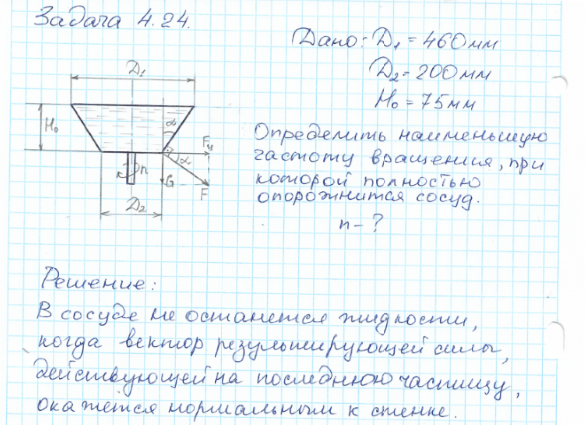 Задача 4.24.
Дано: D₁ = 460мм
D₂ = 200мм
H₀ = 75мм
D₁
H₀
α
n
Fц
α
G
F
D₂
Определить наименьшую
частоту вращения, при
которой полностью
опорожнится сосуд.
n - ?
Решение:
В сосуде не останется жидкости,
когда вектор результирующей силы,
действующей на последнюю частицу,
окажется нормальным к стенке.